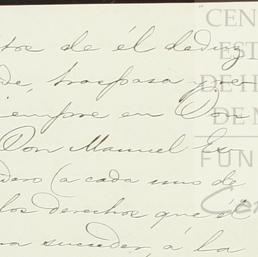 tos de él deduz
de, traspasa y re
siempre en Don
Don Manuel Ex
dero (a cada uno de
los derechos que él
ra suceder, á la
"CEN
EST
DE H
DE M
FUN
Ce